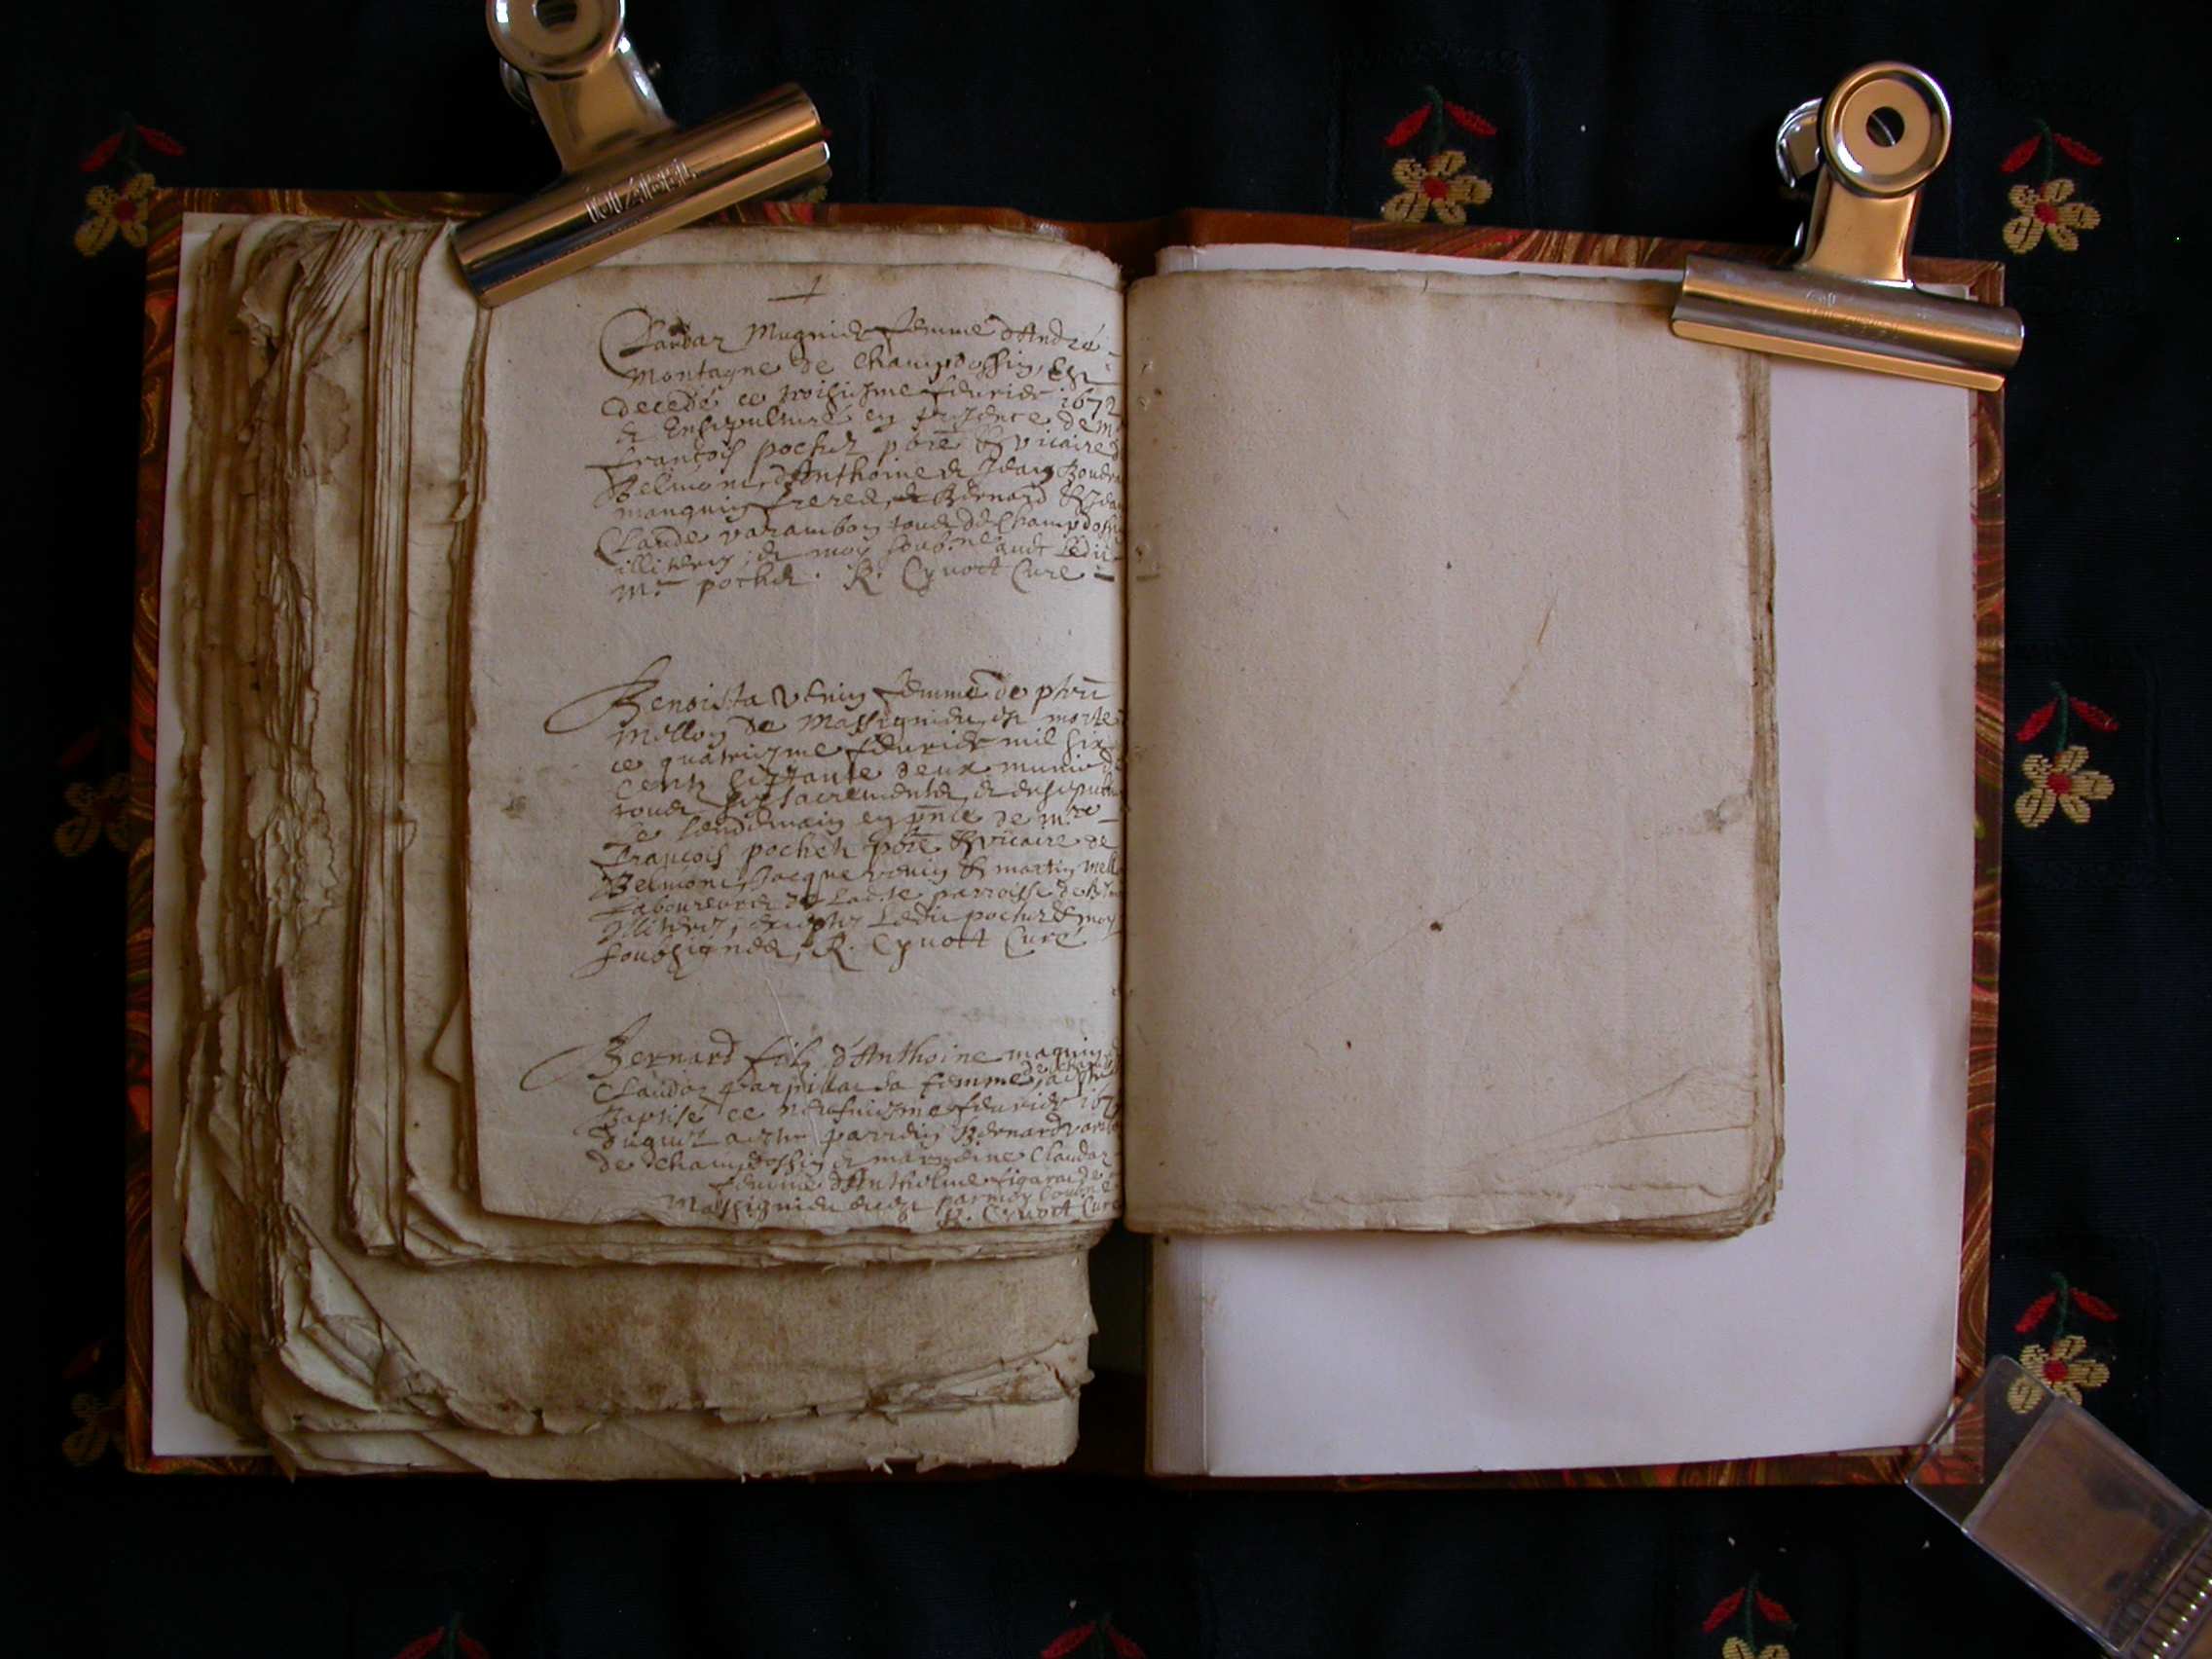 Claudaz Mugnier femme d'André
Montagne de Champdossin, Est
decedé ce troisiesme febvrier 1672
& Ensepulturé en presence de mr
françois pochet pbre & vicaire
Belmont, d'Anthoine & Jean
manquin freres, & Bernard & Jean
Claude varambon tous de Champdossin
illiteres, & moy soub.né avec Ledit
Mre pochet. R. Cyvoct Curé
Benoista venin femme de
mellon de Massignieu, est morte
ce quatriesme febvrier mil six
cents septante deux munie de
tous ses sacrements, & ensepulturé
Le lendemain en pnce de mre
françois pochet pbre & vicaire de
Belmont, Jacque venin & martin mell
Laboureurs de Ladte parroisse de
Illiteres, exceptez Ledit pochet & moy
soubsignes, R. Cyvoct Curé
Bernard filz d'Anthoine manquin
Claudaz sa femme, a esté
Baptisé ce neufviesme febvrier 167
duquel a esté parrein Bernard
de Champdossin & mareine Claudaz
femme d'Anthelme figaret de
Massignieu par moy soub.né
R. Cyvoct Curé